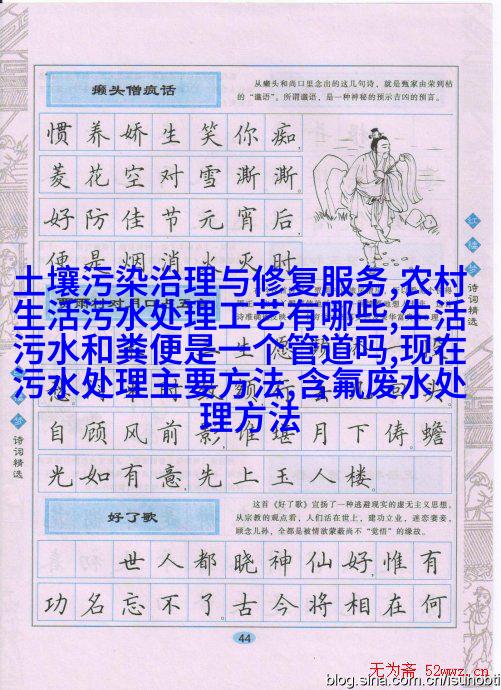 癞头僧疯话
从癞头和尚口里念出的这几句诗，就是甄家由荣到枯
的“谶语”。所谓谶语，是一种神秘的预示吉凶的预言。
惯养娇生笑你痴，
菱花空对雪澌澌。
好防佳节元宵后，
便是烟消火灭时
土壤污染治理与修复服务,农村
生活污水处理工艺有哪些,生活
污水和粪便是一个管道吗,现在
污水处理主要方法,含氟废水处
理方法
自顾风前影，谁堪月下俦。蟾
光如有意，先上玉人楼。
好了歌
这首《好了歌》宣扬了一种逃避现实的虚无主义思想。
从宗教的观点看，人们活在世上，建功立业，迷恋妻妾，
顾念儿孙，全都是被情欲蒙蔽尚不“觉悟”的缘故。
世人都晓神仙好，惟有
功名忘不了！古今将相在何
红楼梦
诗词精选
诗词精选
44
无为斋 52wwz.cn
blog.sina.com.cn/isunobti